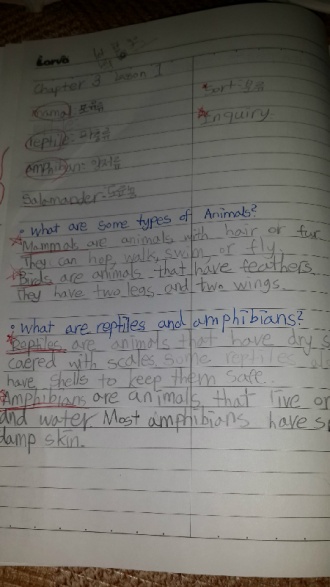 Chapter 3 lesson 1
Mammal 포유류
*Sort-분류
Reptile- 파충류
*Inquiry-
Amphibian- 양서류
Salamander-
• What are some types of Animals?
*Mammals are animals with hair or fur
They can hop, walk, swim or fly.
*Birds are animals that have feathers
They have two legs and two wings.
• What are reptiles and amphibians?
*Reptiles are animals that have dry
coered with scales. Some reptiles
have shells to keep them safe.
Amphibians are animals that live
and water Most amphibians have
damp skin.